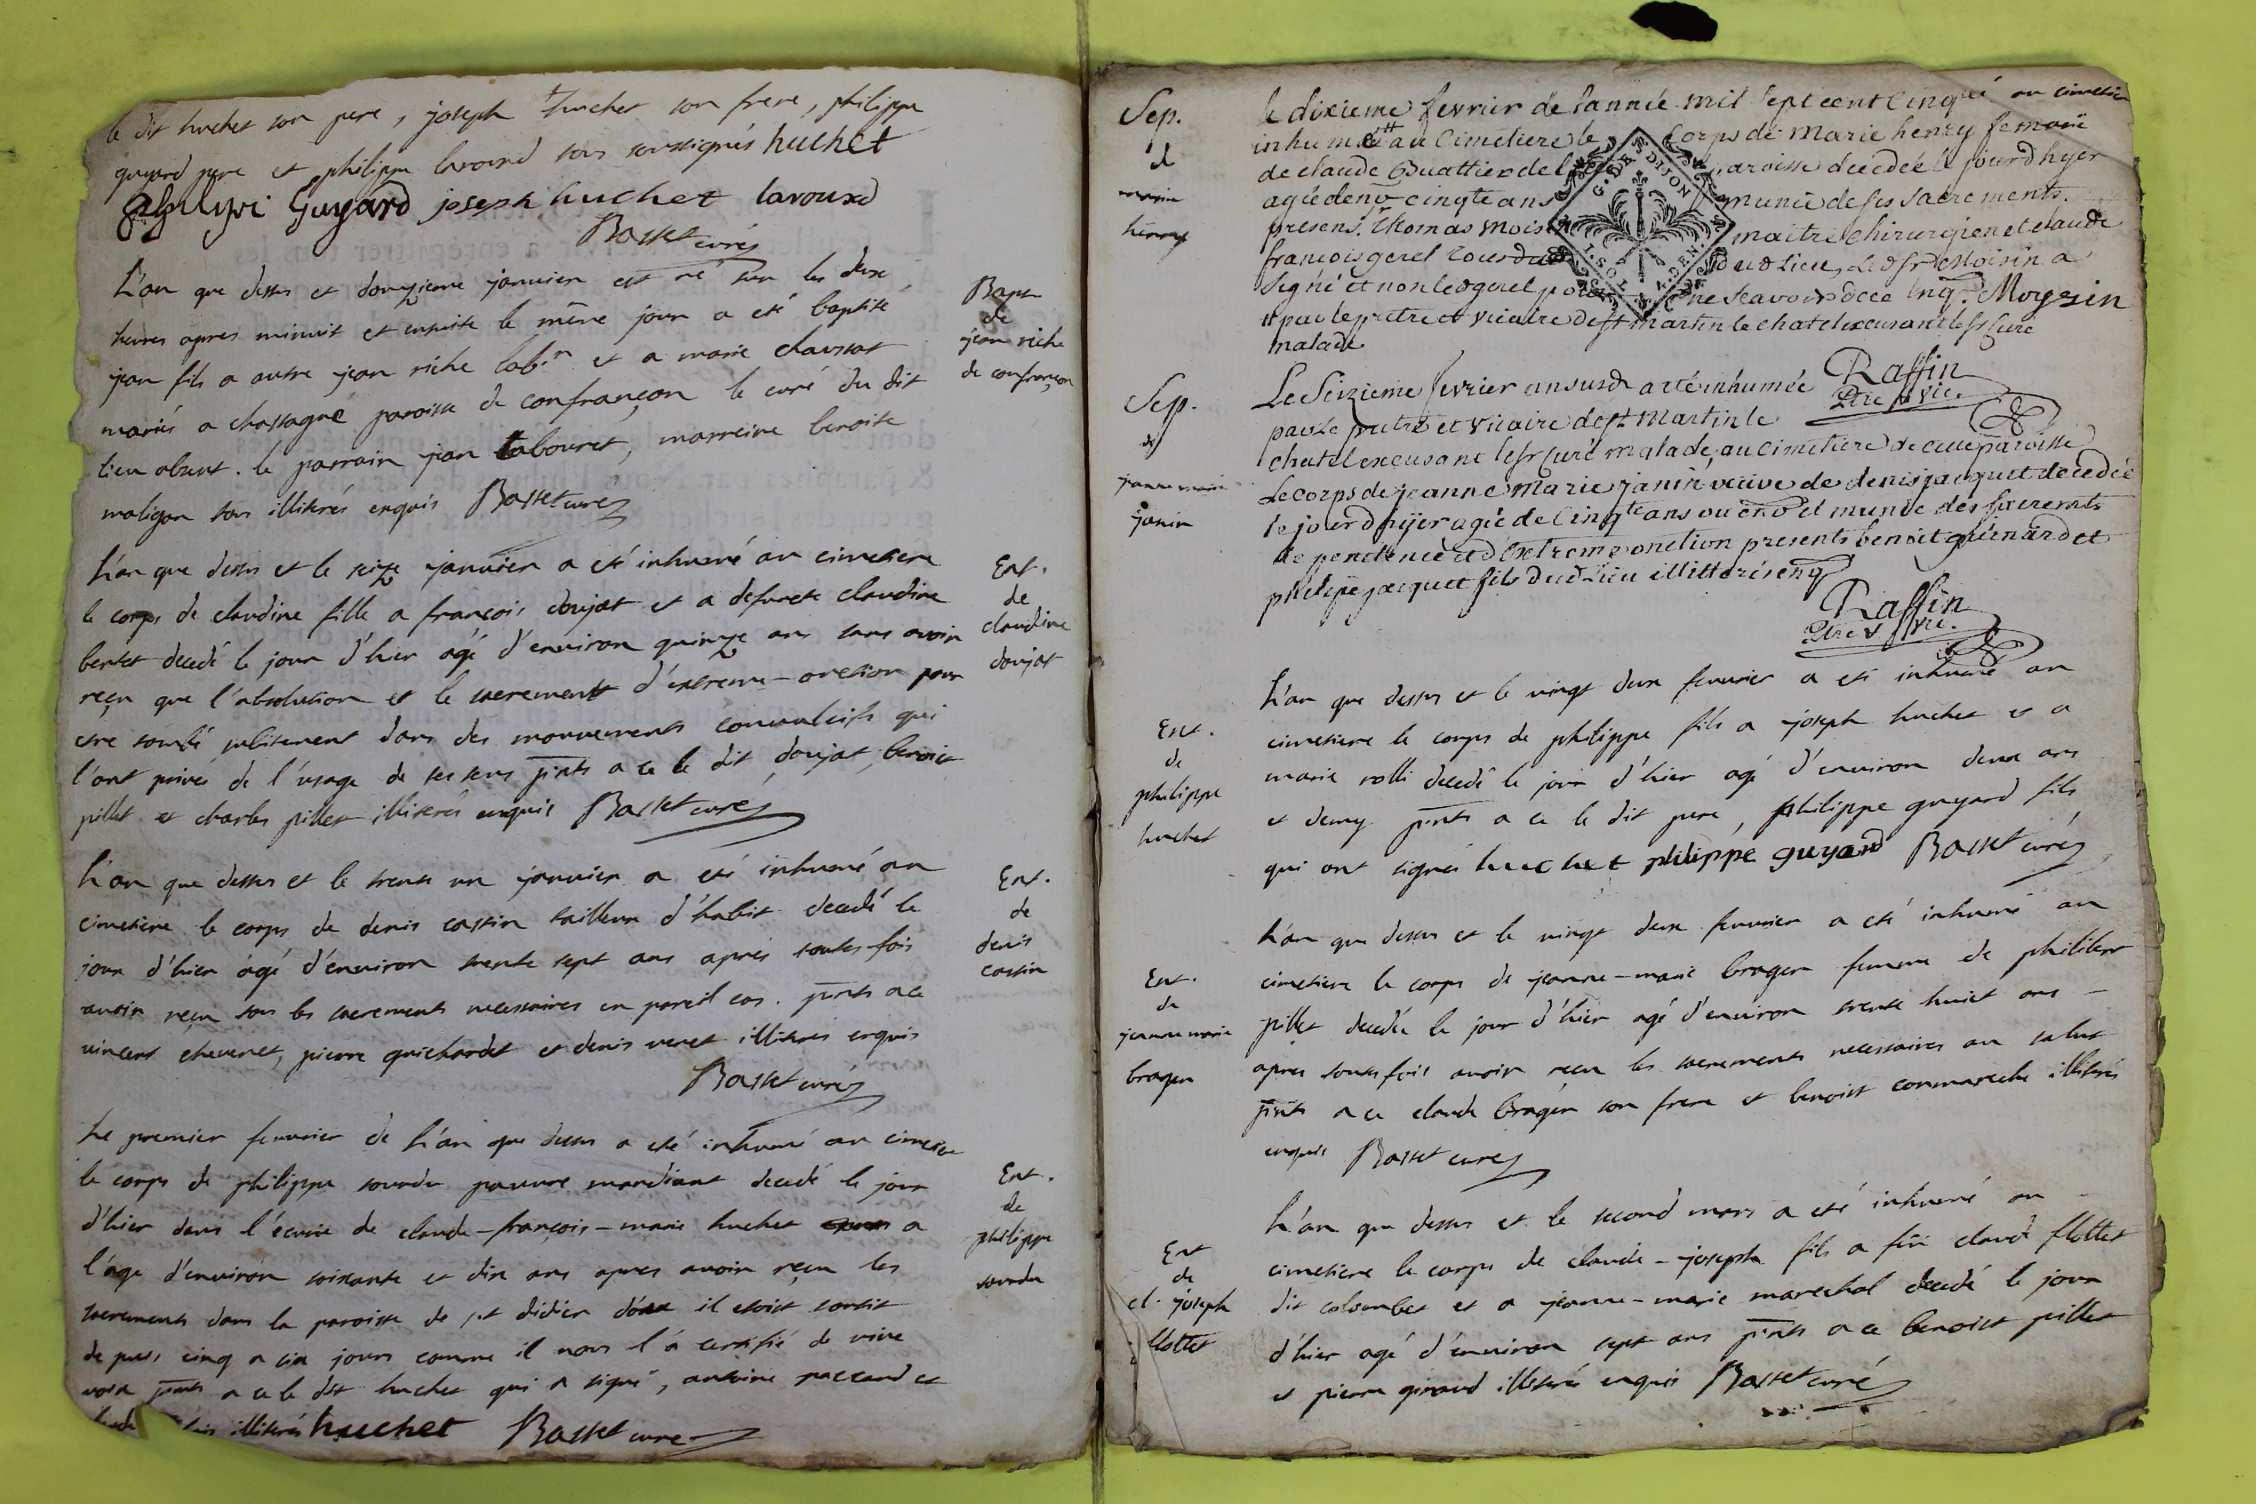 le dit huchet son pere, joseph huchet son frere, philippe
guyard pere et philippe lavourd tous soussignés huchet
philippe Guyard joseph huchet lavourd
Basset curé
L'an que dessus et douzieme janvier est né sur les deux
heures apres minuit et ensuite le même jour a eté baptisé
jean fils a autre jean riche labr et a marie chaussat
mariés a chassagne paroisse de confrançon le curé du dit
lieu absent. le parrain jean tabouret, marreine benoite
maligan tous illiterés enquis Basset curé
Bapt
de
jean riche
de confrançon
L'an que dessus et le seize janvier a eté inhumé au cimetiere
le corps de claudine fille a françois doujat et a defuncte claudine
bertet decedé le jour d'hier agé d'environ quinze ans sans avoir
reçu que l'absolution et le sacrement d'extreme-onction pour
etre tombé subitement dans des mouvements convulsifs qui
l'ont privés de l'usage de ses sens pnts a ce le dit doujat, benoit
pillet et charles pillet illiterés enquis Basset curé
Ent.
de
claudine
doujat
L'an que dessus et le trente un janvier a eté inhumé au
cimetiere le corps de denis cassin tailleur d'habit decedé le
jour d'hier âgé d'environ trente sept ans aprés toutes fois
avoir reçu tous les sacrements necessaires en pareil cas. pnts a ce
vincent chevenet, pierre guichardet et denis veret illiterés enquis
Basset curé
Ent.
de
denis
cassin
Le premier feuvrier de L'an que dessus a eté inhumé au cimetiere
le corps de philippe sourdu pauvre mandiant decedé le jour
d'hier dans l'écurie de claude-françois-marie huchet a
l'âge d'environ soixante et dix ans apres avoir reçu les
sacrements dans la paroisse de st didier il etoit sortit
depuis cinq a six jours comme il nous l'a certifié de vive
voix pnts a ce le dit huchet qui a signé, antoine paccaud et
illiterés huchet Basset curé
Ent.
de
philippe
sourdu
Sep.
de
marie
henry
le dixieme fevrier de l'année mil sept cent cinqte au cimetiere
inhumé au Cimetiere le Corps de Marie henry femme
de claude Buattier de paroisse decedée le jourdhyer
agée denv cinqte ans munie de ses sacrements.
presens. Thomas Moisin maitre chirurgien et claude
françois gerel tous du dud Lieu, Led sr Moisin a
signé et non led gerel pour ne scavoir dece Enq. Moyzin
par le pretre et vicaire de st martin le chatel excusant le sr Cure
malade
G. DE DIJON
Raffin
Ptre vic.
Sep.
de
jeanne marie
janin
Le Seizieme fevrier an susd a eté inhumée
par le pretre et vicaire de st Martin le
chatel excusant le sr Curé malade, au cimetiere de cette paroisse
Le corps de jeanne Marie janin veuve de denis jacquet decedée
le jour dhyer agée de Cinqte ans ou env et munie des sacrements
de penitence et dextreme onction presents benoit guenard et
philipe jacquet fils dud Lieu illitteréz enq
Raffin
Ptre vic.
L'an que dessus et le vingt deux feuvrier a eté inhumé au
cimetiere le corps de philippe fils a joseph huchet et a
marie rolli decedé le jour d'hier agé d'environ deux ans
et demy pnts a ce le dit pere, philippe guyard fils
qui ont signés huchet philippe guyard Basset curé
Ent.
de
philippe
huchet
L'an que dessus et le vingt deux feuvrier a eté inhumé au
cimetiere le corps de jeanne-marie bragen femme de philibert
pillet decedée le jour d'hier agé d'environ trente huict ans
apres toutesfois avoir reçu les sacrements necessaires au salut
pnts a ce claude bragen son frere et benoist conmareche illiterés
enquis Basset curé
Ent.
de
jeanne marie
bragen
L'an que dessus et le second mars a eté inhumé au
cimetiere le corps de claude-joseph fils a feu claude flottet
dit colombet et a jeanne-marie marechal decedé le jour
d'hier agé d'environ sept ans pnts a ce benoist pillet
et pierre giraud illiterés enquis Basset curé
Ent
de
cl. joseph
flottet